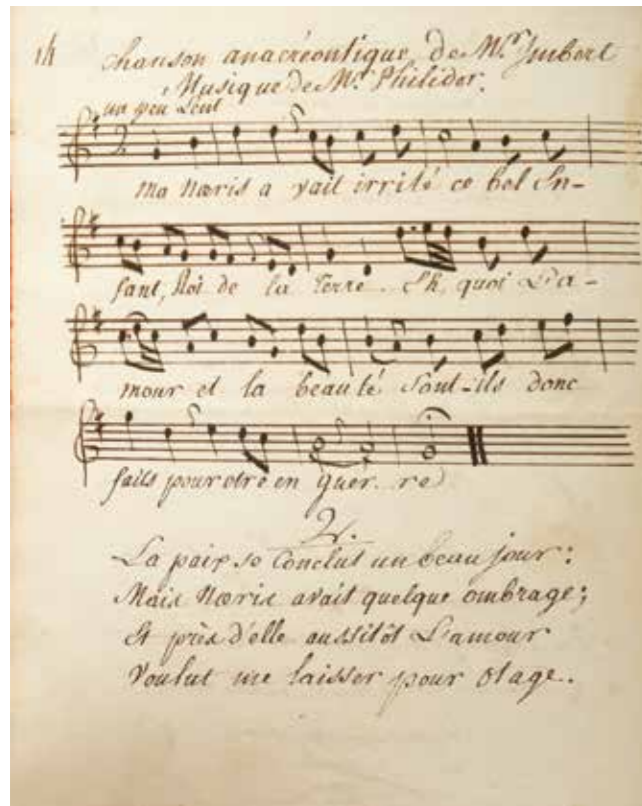 14
Chanson anacréontique de Mr. Imbert
Musique de Mr. Philidor.
un peu Lent
ma Næris a vait irrité ce bel En-
fant, Roi de la Terre. Eh, quoi L'a-
mour et la beauté Sont-ils donc
faits pour etre en guer. re
2.
La paix se Conclut un beau jour:
Mais Næris avait quelque ombrage;
Et près d'elle aussitôt L'amour
Voulut me laisser pour Otage.